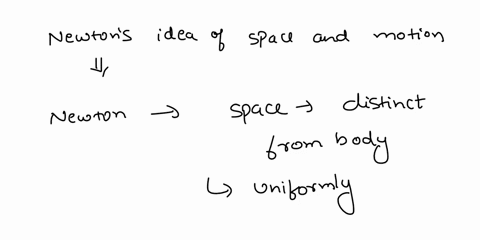 Newton's idea of space and motion
⇓
Newton → space → distinct
from body
↳ uniformly